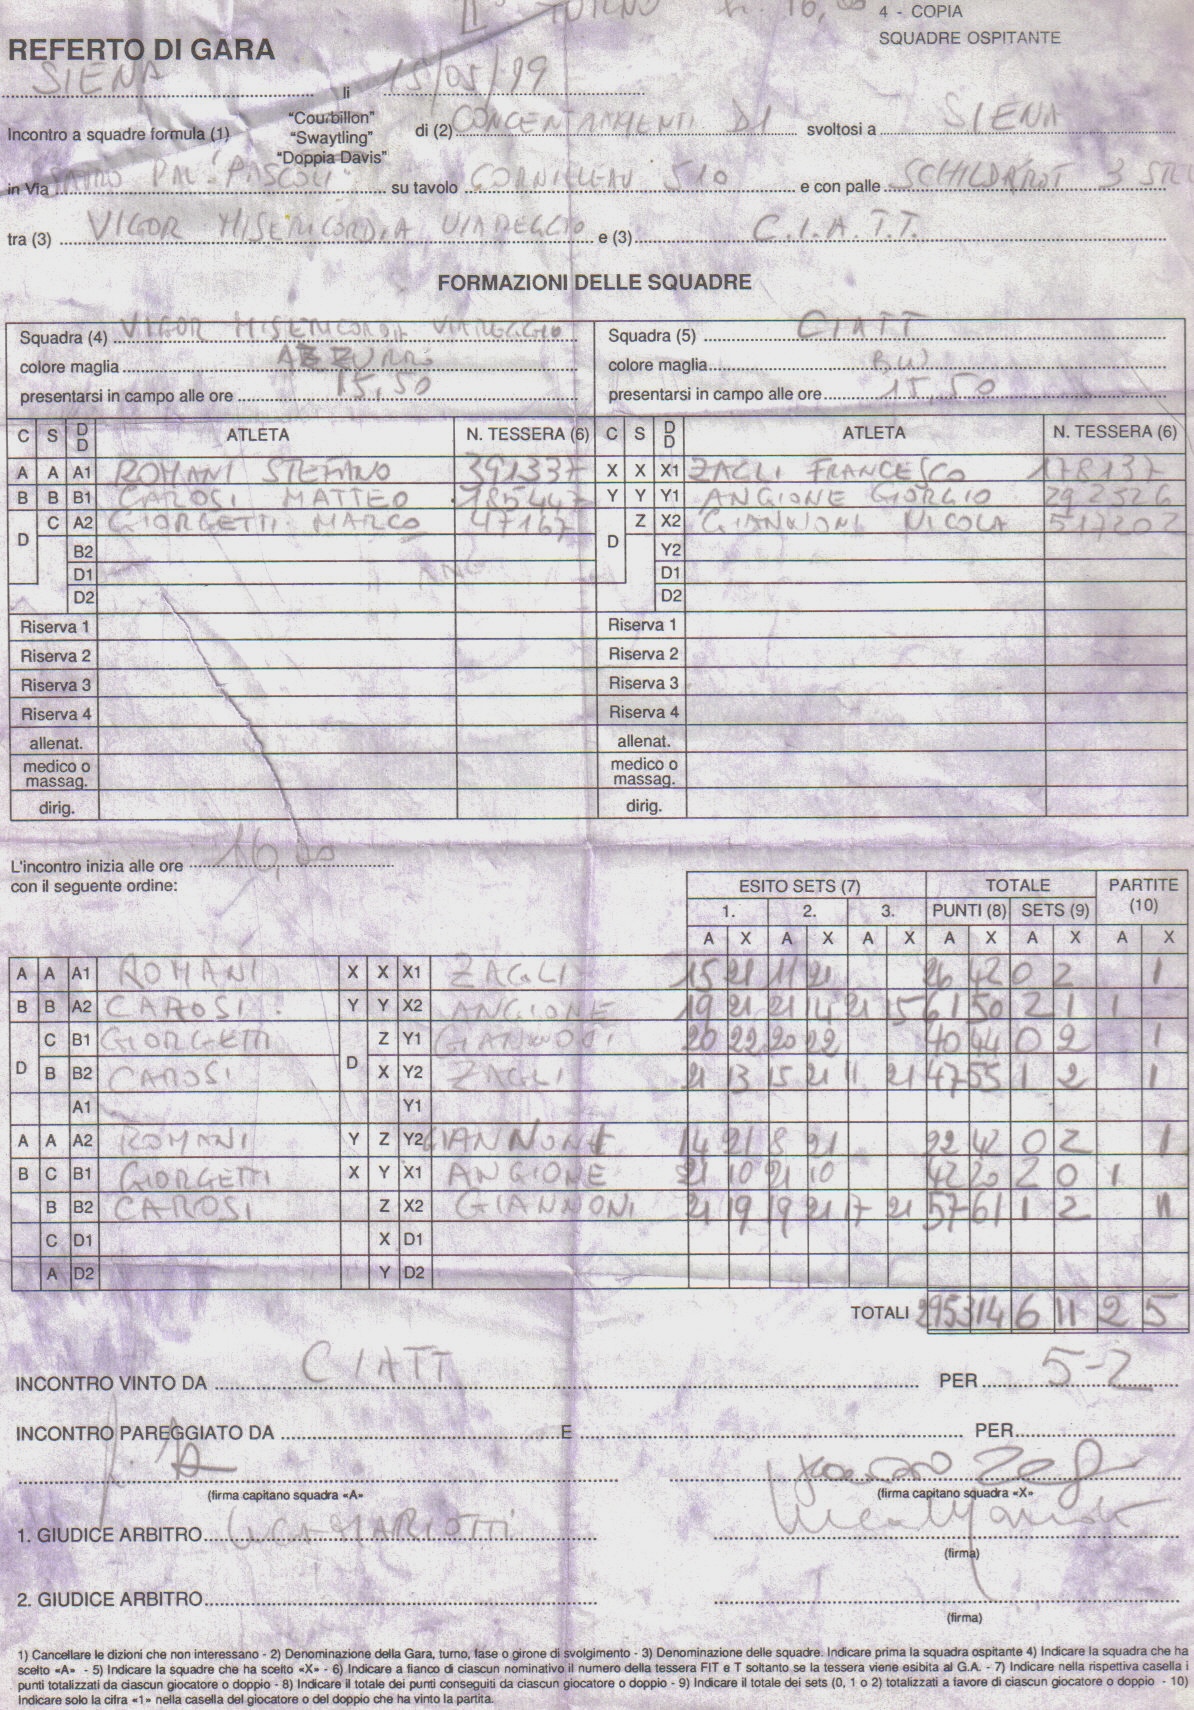 II° TURNO h. 16,00
4 - COPIA
SQUADRE OSPITANTE
REFERTO DI GARA
SIENA li 15/05/99
Incontro a squadre formula (1) "Courbillon" "Swaytling" "Doppia Davis" di (2) CONCENTRAMENTI DI svoltosi a SIENA
in Via PAL. PASCOLI su tavolo CORNILLEAU 510 e con palle 3
tra (3) VIGOR MISERICORDIA VIAREGGIO e (3) C.I.A.T.T.
FORMAZIONI DELLE SQUADRE
Squadra (4) VIGOR MISERICORDIA VIAREGGIO Squadra (5) CIATT
colore maglia AZZURRO colore maglia
presentarsi in campo alle ore 15,50 presentarsi in campo alle ore 15,50
C S D D ATLETA N. TESSERA (6) C S D D ATLETA N. TESSERA (6)
A A A1 ROMANI STEFANO 391337 X X X1 ZAGLI FRANCESCO 178137
B B B1 CAROSI MATTEO 185447 Y Y Y1 ANGIONE GIORGIO 292326
D C A2 GIORGETTI MARCO 47167 D Z X2 GIANNONI NICOLA 517202
B2 Y2
D1 ANG D1
D2 D2
Riserva 1 Riserva 1
Riserva 2 Riserva 2
Riserva 3 Riserva 3
Riserva 4 Riserva 4
allenat. allenat.
medico o massag. medico o massag.
dirig. dirig.
L'incontro inizia alle ore 16,00
con il seguente ordine:
ESITO SETS (7) TOTALE PARTITE (10)
1. 2. 3. PUNTI (8) SETS (9)
A X A X A X A X A X A X
A A A1 ROMANI X X X1 ZAGLI 15 21 11 21 26 42 0 2 1
B B A2 CAROSI Y Y X2 ANGIONE 19 21 21 14 21 15 61 50 2 1 1
C B1 GIORGETTI Z Y1 GIANNONI 20 22 20 22 40 44 0 2 1
D B B2 CAROSI D X Y2 ZAGLI 21 13 15 21 11 21 47 55 1 2 1
A1 Y1
A A A2 ROMANI Y Z Y2 GIANNONI 14 21 8 21 22 42 0 2 1
B C B1 GIORGETTI X Y X1 ANGIONE 21 10 21 10 42 20 2 0 1
B B2 CAROSI Z X2 GIANNONI 21 19 19 21 17 21 57 61 1 2 1
C D1 X D1
A D2 Y D2
TOTALI 295 314 6 11 2 5
INCONTRO VINTO DA CIATT PER 5-2
INCONTRO PAREGGIATO DA E PER
(firma capitano squadra «A» (firma capitano squadra «X»
1. GIUDICE ARBITRO LUCA MARIOTTI
(firma)
2. GIUDICE ARBITRO
(firma)
1) Cancellare le dizioni che non interessano - 2) Denominazione della Gara, turno, fase o girone di svolgimento - 3) Denominazione delle squadre. Indicare prima la squadra ospitante 4) Indicare la squadra che ha
scelto «A» - 5) Indicare la squadre che ha scelto «X» - 6) Indicare a fianco di ciascun nominativo il numero della tessera FIT e T soltanto se la tessera viene esibita al G.A. - 7) Indicare nella rispettiva casella i
punti totalizzati da ciascun giocatore o doppio - 8) Indicare il totale dei punti conseguiti da ciascun giocatore o doppio - 9) Indicare il totale dei sets (0, 1 o 2) totalizzati a favore di ciascun giocatore o doppio - 10)
Indicare solo la cifra «1» nella casella del giocatore o del doppio che ha vinto la partita.